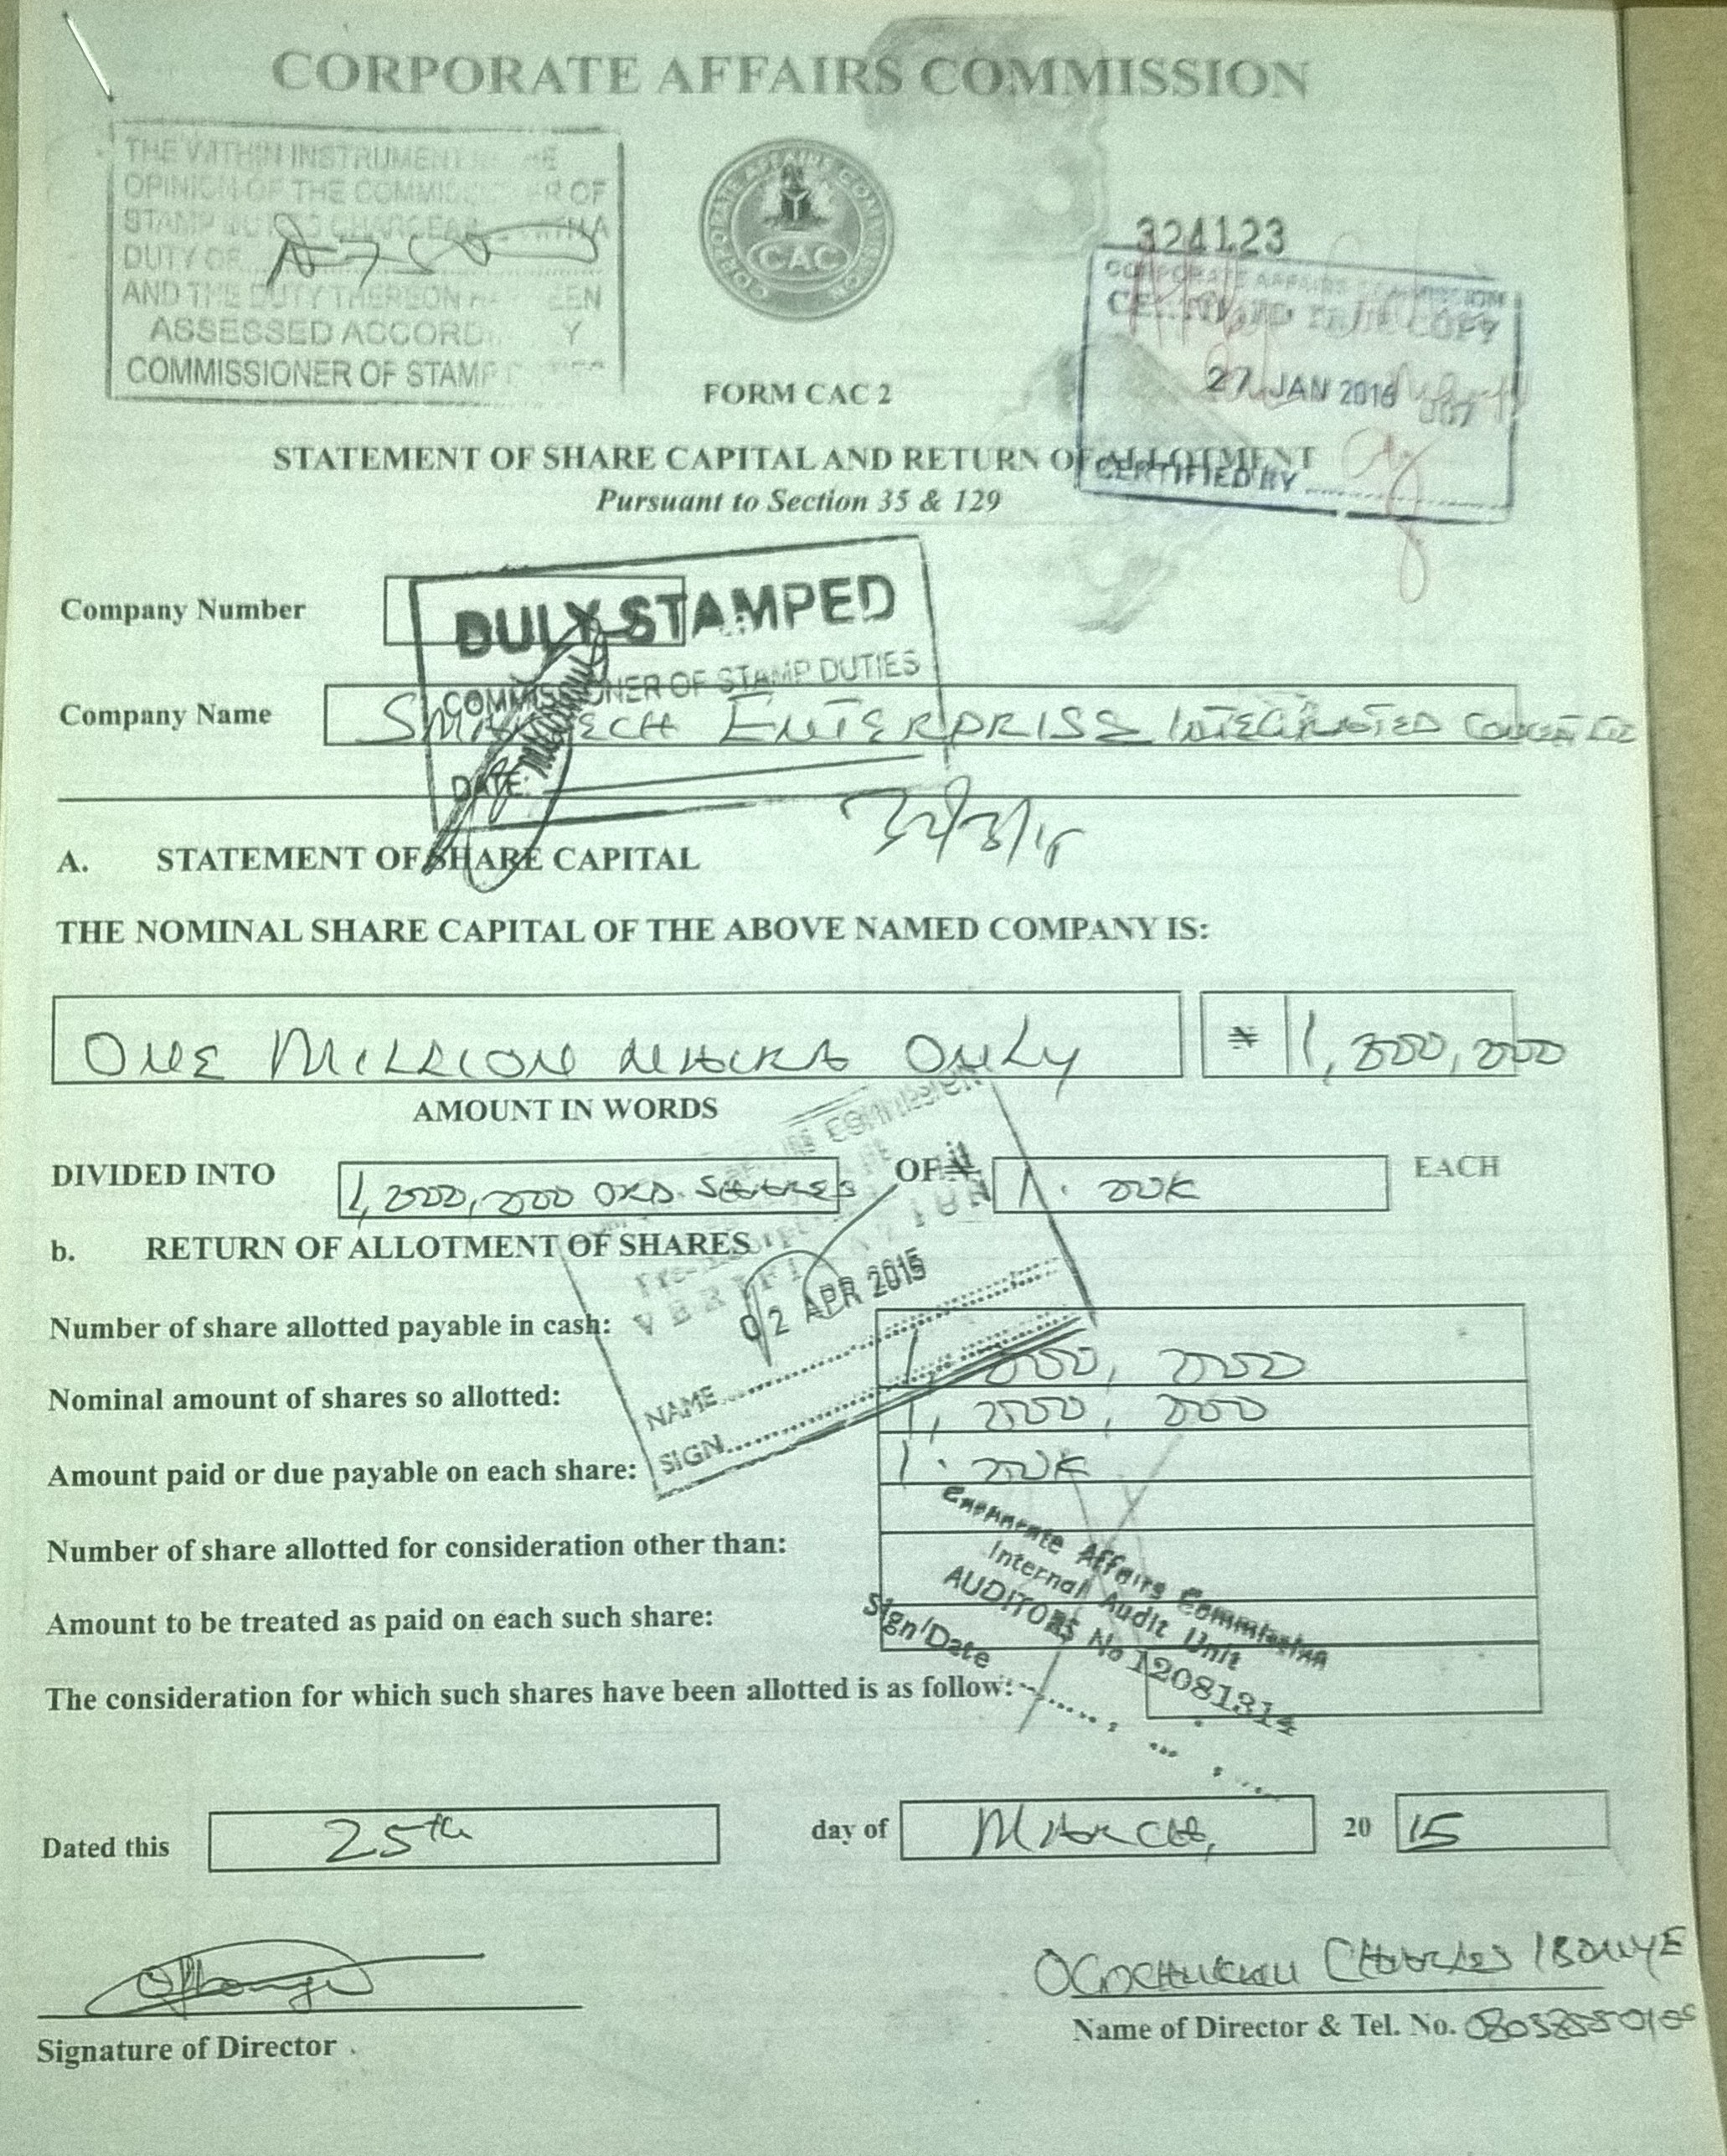 CORPORATE AFFAIRS COMMISSION
THE WITHIN INSTRUMENT
OPINION OF THE COMMIS R OF
STAMP DUTIES CHARGEAB WITH A
DUTY OF
AND THE DUTY THEREON EEN
ASSESSED ACCORD Y
COMMISSIONER OF STAMP
CORPORATE AFFAIRS COMMISSION
CAC
324123
CORPORATE AFFAIRS COMMISSION
CERTIFIED TRUE COPY
27 JAN 2016
CERTIFIED BY
FORM CAC 2
STATEMENT OF SHARE CAPITAL AND RETURN OF ALLOTMENT
Pursuant to Section 35 & 129
Company Number
DULY STAMPED
COMMISSIONER OF STAMP DUTIES
Company Name
ENTERPRISE INTEGRATED
DATE:
A. STATEMENT OF SHARE CAPITAL
THE NOMINAL SHARE CAPITAL OF THE ABOVE NAMED COMPANY IS:
ONE MILLION NAIRA ONLY ₦ 1,000,000
AMOUNT IN WORDS
DIVIDED INTO 1,000,000 ORD. SHARES OF ₦ 1.00K EACH
b. RETURN OF ALLOTMENT OF SHARES
02 APR 2015
NAME
SIGN
Number of share allotted payable in cash: 1,000,000
Nominal amount of shares so allotted: 1,000,000
Amount paid or due payable on each share: 1.00K
Number of share allotted for consideration other than:
Amount to be treated as paid on each such share:
The consideration for which such shares have been allotted is as follow:
Corporate Affairs Commission
Internal Audit Unit
AUDITORS No 12081314
Sign/Date
Dated this 25th day of MARCH, 20 15
OGOCHUKWU CHARLES IBONYE
Signature of Director
Name of Director & Tel. No.